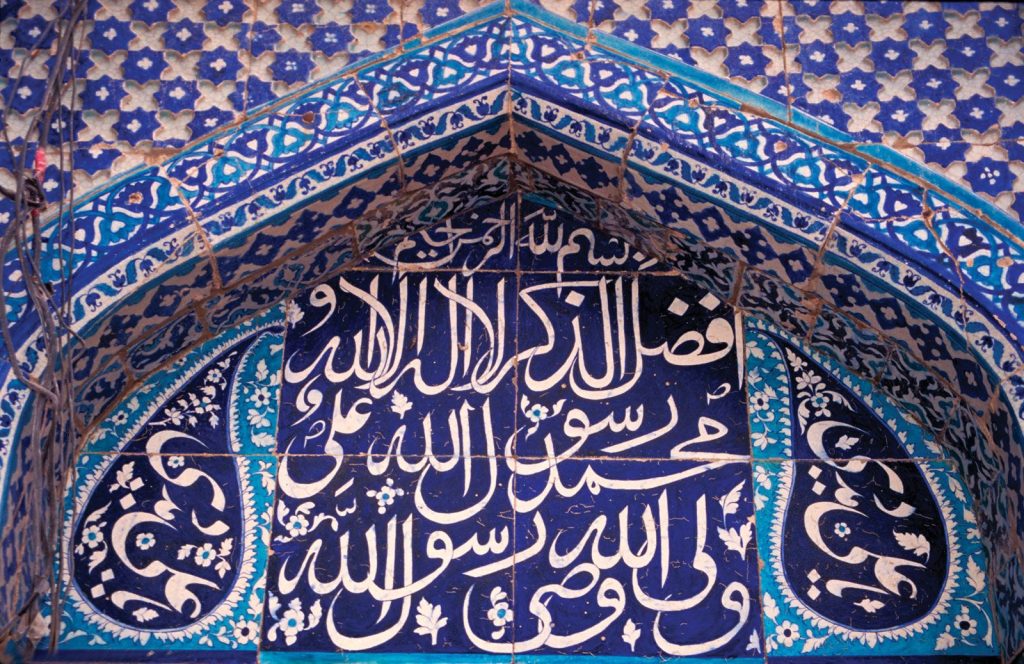 بسم الله الرحمن الرحيم
افضل الذكر لا اله الا الله و
محمد رسول الله و علی
ولی الله وصی رسول الله